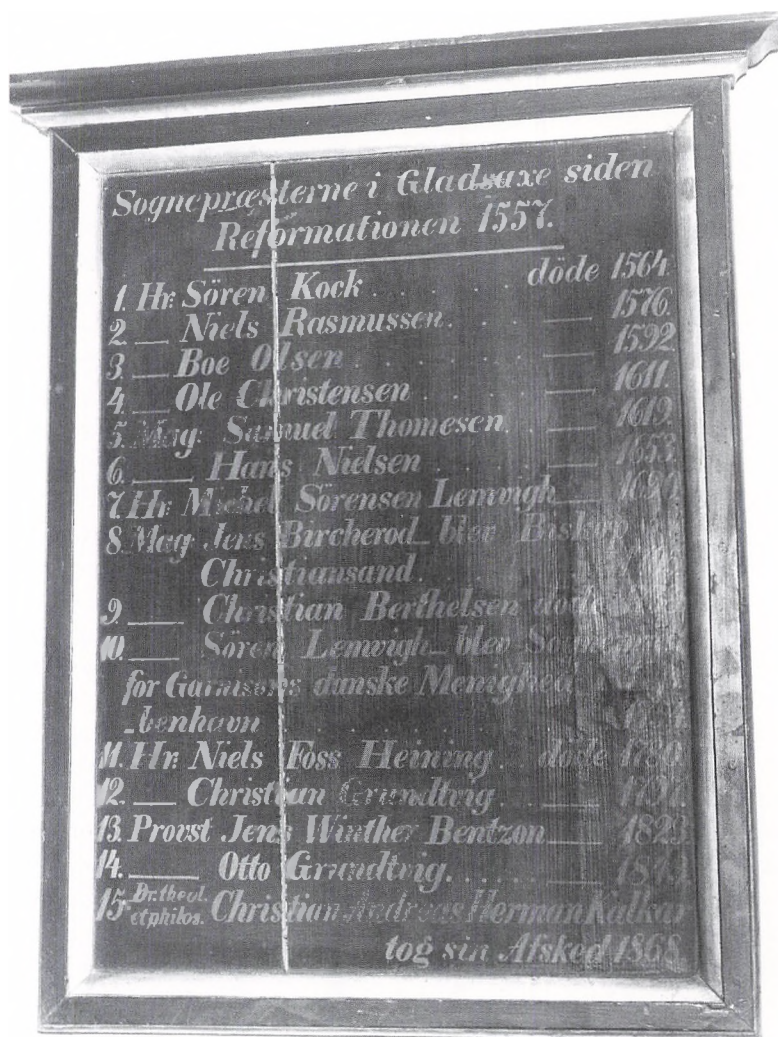 Sognepræsterne i Gladsaxe siden
Reformationen 1557.
1. Hr. Sören Kock . . . . . döde 1564.
2. — Niels Rasmussen. . . . — 1576.
3. — Boe Olsen . . . . . . . — 1592.
4. — Ole Christensen . . . . — 1611.
5. Mag. Samuel Thomesen. . — 1619.
6. — Hans Nielsen . . . . — 1653.
7. Hr. Michel Sörensen Lemvigh —
8. Mag. Jens Bircherod _ blev Biskop
Christiansand.
9. — Christian Berthelsen döde
10. — Sören Lemvigh _ blev
for Garnisons danske Menighed
_benhavn
11. Hr. Niels Foss Heining . . döde 1780.
12. — Christian Grundtvig . . —
13. Provst Jens Winther Bentzon — 1823.
14. — Otto Grundtvig. . . . . —
15. Dr. theol. et philos. Christian Andreas Herman Kalkar
tog sin Afsked 1868